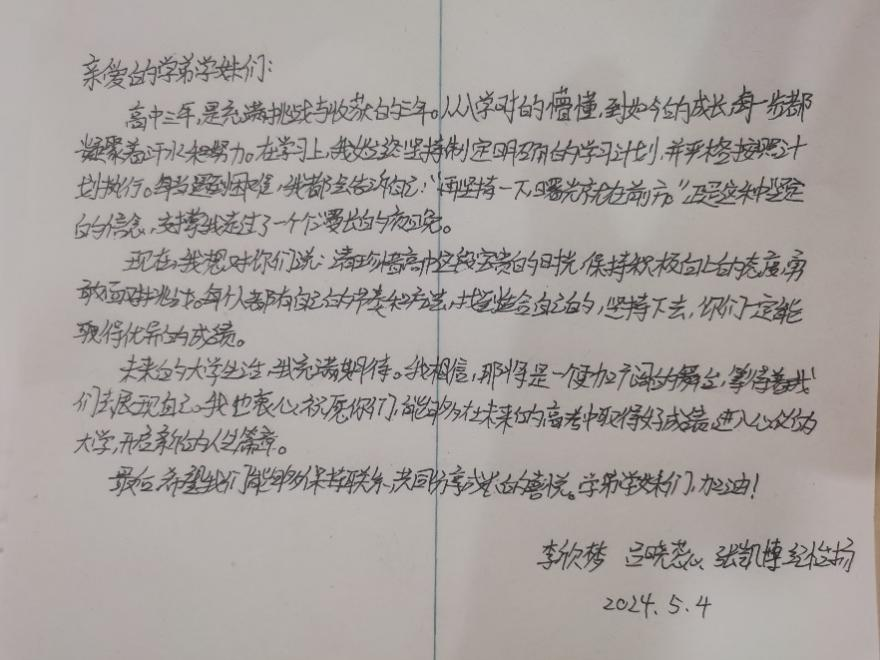 亲爱的学弟学妹们：
高中三年，是充满挑战与收获的三年。从入学时的懵懂，到如今的成长，每一步都
凝聚着汗水和努力。在学习上，我始终坚持制定明确的学习计划，并严格按照计
划执行。每当遇到困难，我都会告诉自己：“再坚持一下，曙光就在前方。”正是这种坚定
的信念，支撑我走过了一个个漫长的夜晚。
现在，我想对你们说：请珍惜高中这段宝贵的时光，保持积极向上的态度，勇
敢面对挑战。每个人都有自己的节奏和方法，找到适合自己的，坚持下去，你们一定能
取得优异的成绩。
未来的大学生活，我充满期待。我相信，那将是一个更加广阔的舞台，等待着我
们去展现自己。我也衷心祝愿你们，能够在未来的高考中取得好成绩，进入心仪的
大学，开启新的人生篇章。
最后，希望我们能够保持联系，共同分享成长的喜悦。学弟学妹们，加油！
李欣梦 吕晓蕊 张凯博
2024.5.4